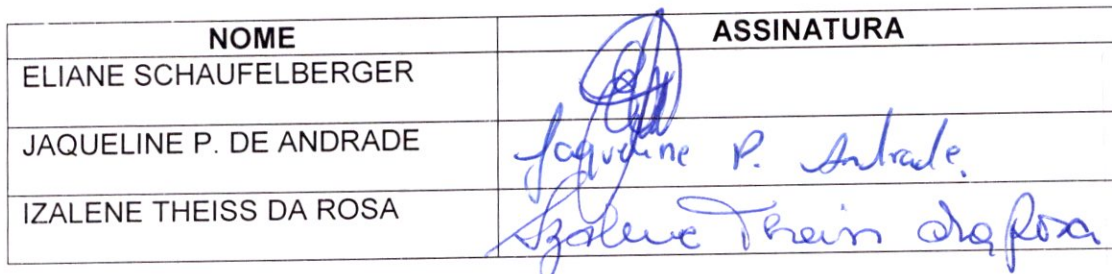 NOME ASSINATURA
ELIANE SCHAUFELBERGER
JAQUELINE P. DE ANDRADE Jaqueline P. Andrade.
IZALENE THEISS DA ROSA Izalene Theiss da Rosa